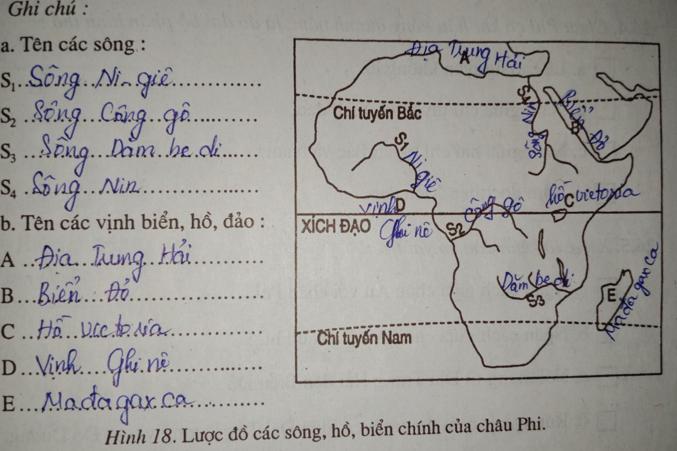 Ghi chú :
a. Tên các sông :
S₁ ...Sông Ni-giê...
S₂ ...Sông Công gô...
S₃ ...Sông Dăm be di...
S₄ ...Sông Nin...
b. Tên các vịnh biển, hồ, đảo :
A ...Địa Trung Hải...
B ...Biển Đỏ...
C ...Hồ Victoria...
D ...Vịnh Ghi nê...
E ...Mađagaxca...
Địa Trung Hải
A
Chí tuyến Bắc
S4
Sông Nin
Biển Đỏ
B
S1
Ni giê
vịnh D
Ghi nê
Công gô
hồ Victoria
C
XÍCH ĐẠO
S2
Dăm be di
S3
E
Mađagaxca
Chí tuyến Nam
Hình 18. Lược đồ các sông, hồ, biển chính của châu Phi.